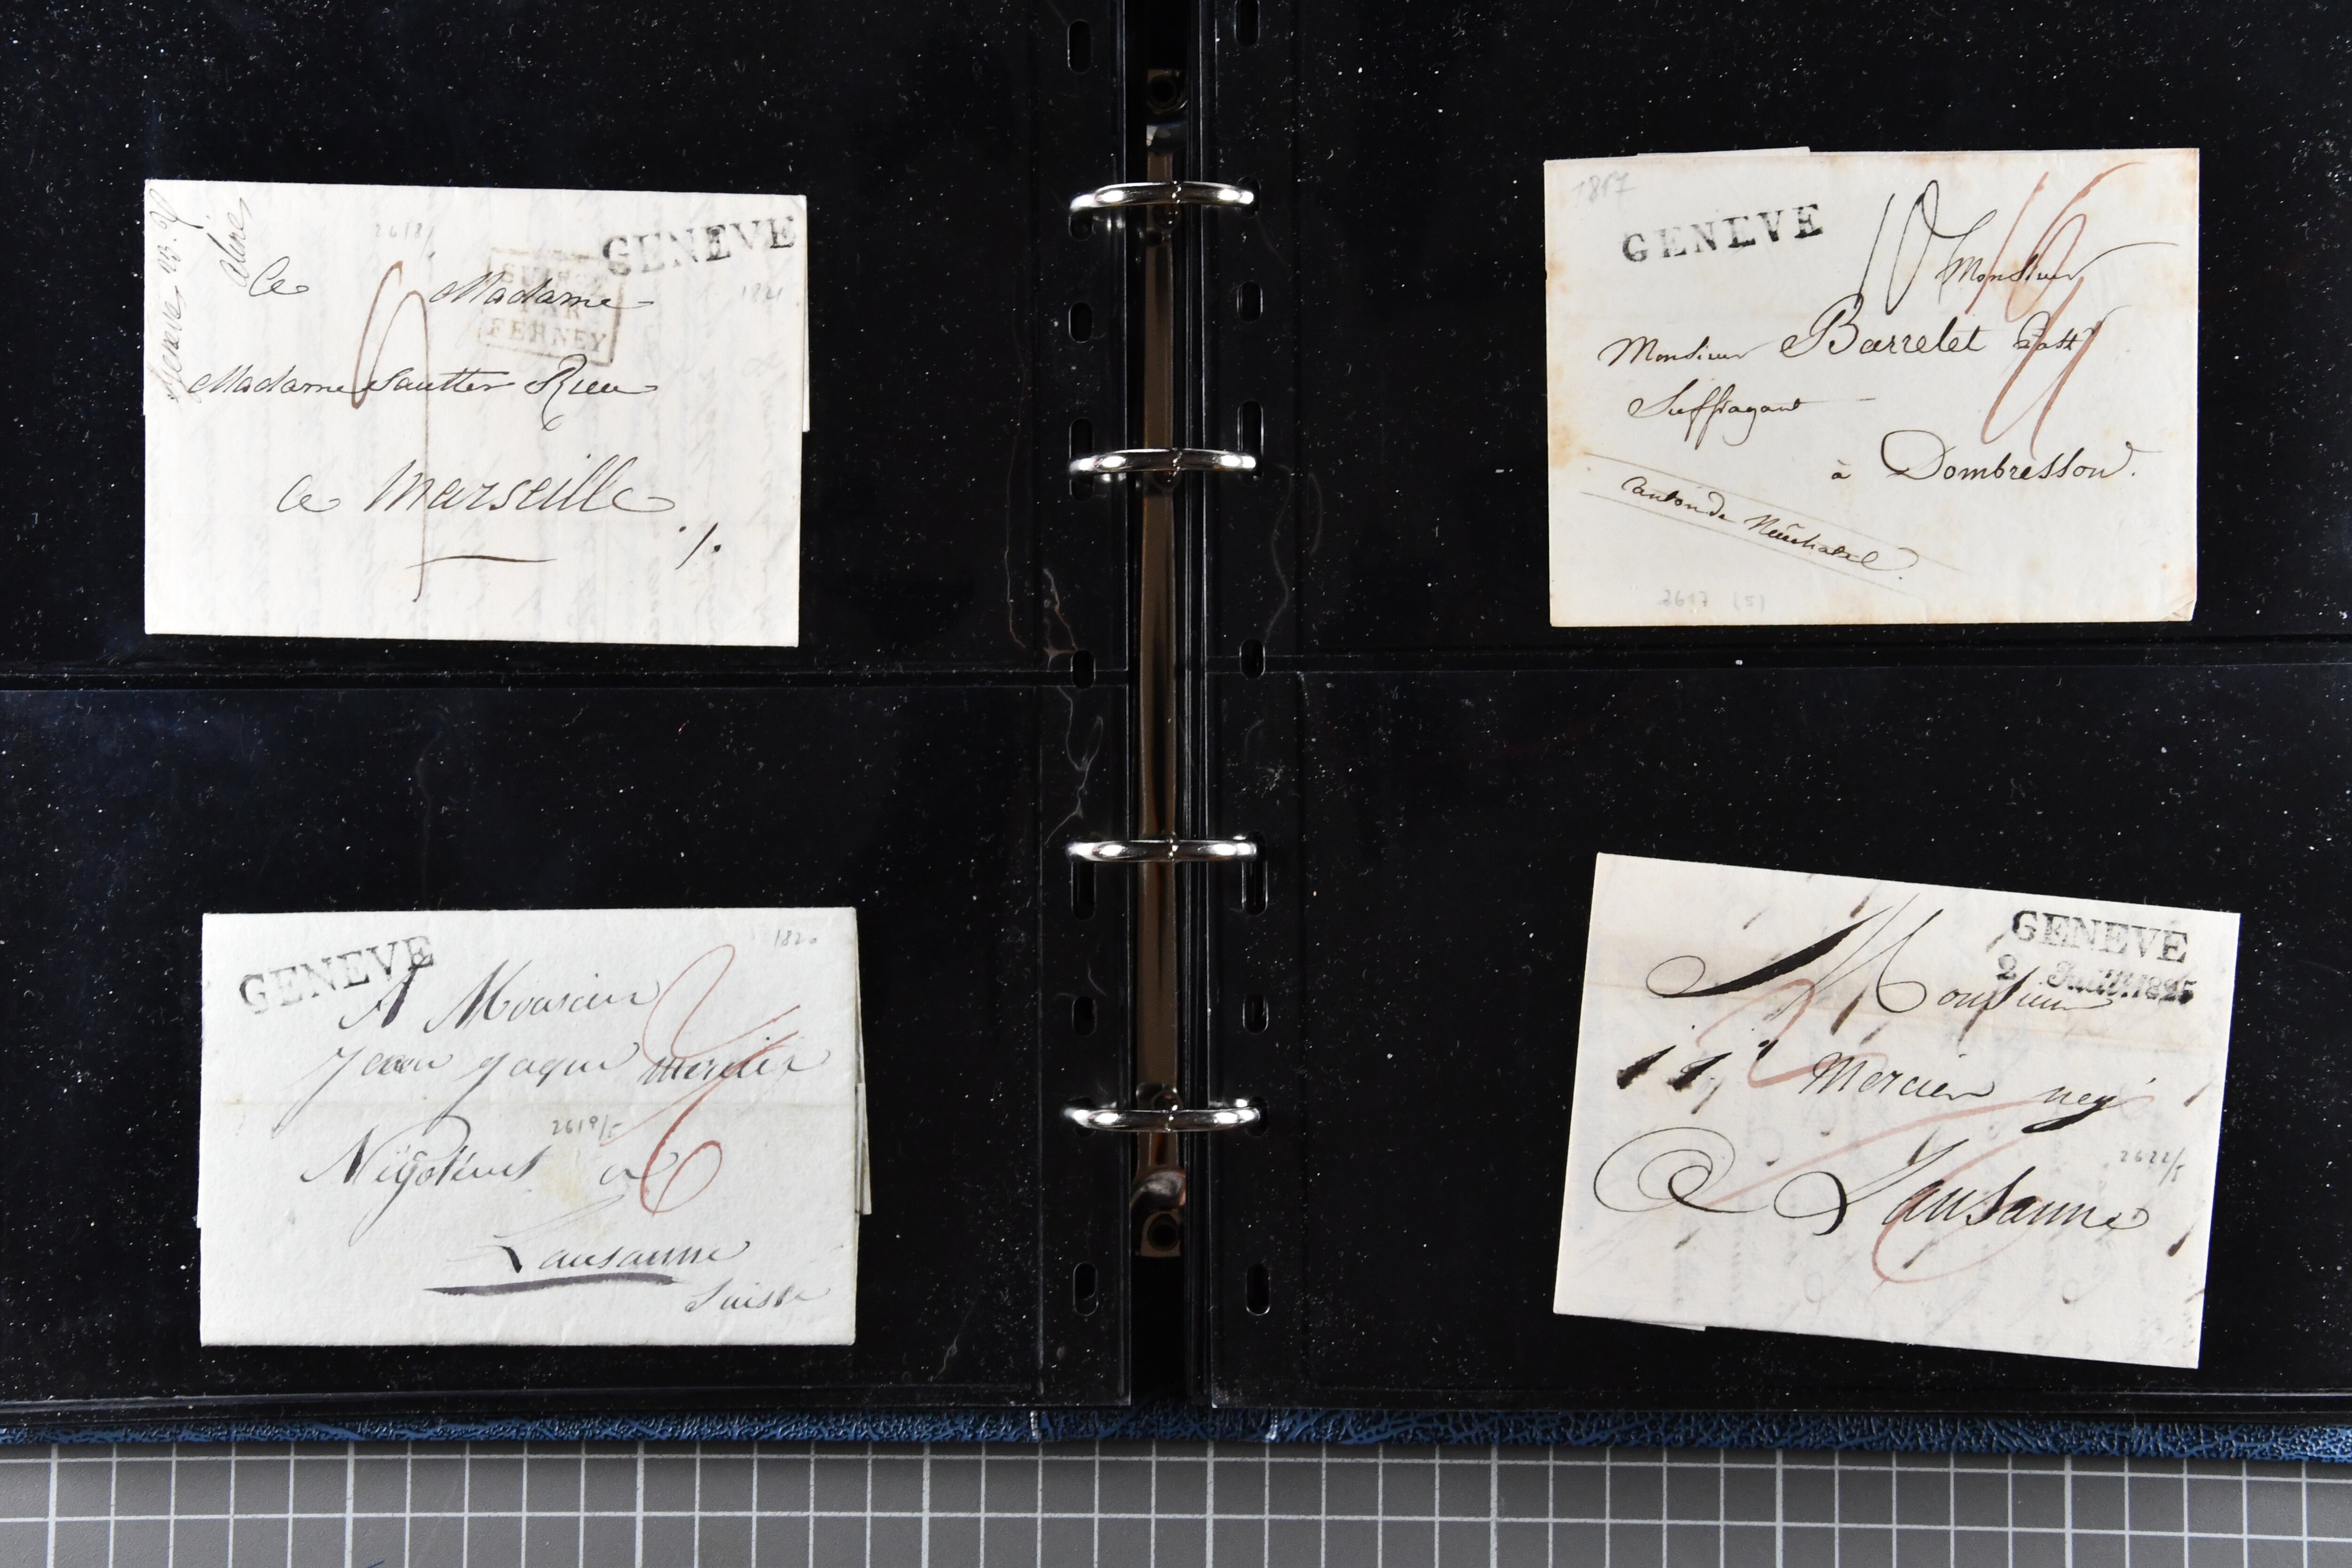 GENEVE
2618/
1821
SUISSE
PAR
FERNEY
a Madame
Madame Sautter Rieu
a Marseille
1817
GENEVE
10
Monsieur
Monsieur Barrelet Past
Suffragant
à Dombresson.
Canton de Neuchatel.
2617 (5)
GENEVE
1820
A Monsieur
Jean Jaque Mercier
2619/5
Négotient a
Lausanne
Suisse
GENEVE
2 Juill. 1825
Monsieur
Mercier neg
2622/5
a Lausanne